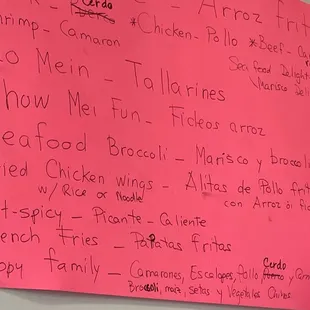 Cerdo - Arroz Frit
hrimp - Camaron *Chicken - Pollo *Beef - Ca
Sea food Delight
Marisco Deli
o Mein - Tallarines
how Mei Fun - Fideos arroz
eafood Broccoli - Marisco y brocco
ied Chicken wings - Alitas de Pollo frit
w/ Rice or Noodle con Arroz ó fi
t-spicy - Picante - Caliente
ench Fries - Papatas fritas
Cerdo
ppy family - Camarones, Escalopes, Pollo y Car
Broccoli, maiz, setas y Vegetales